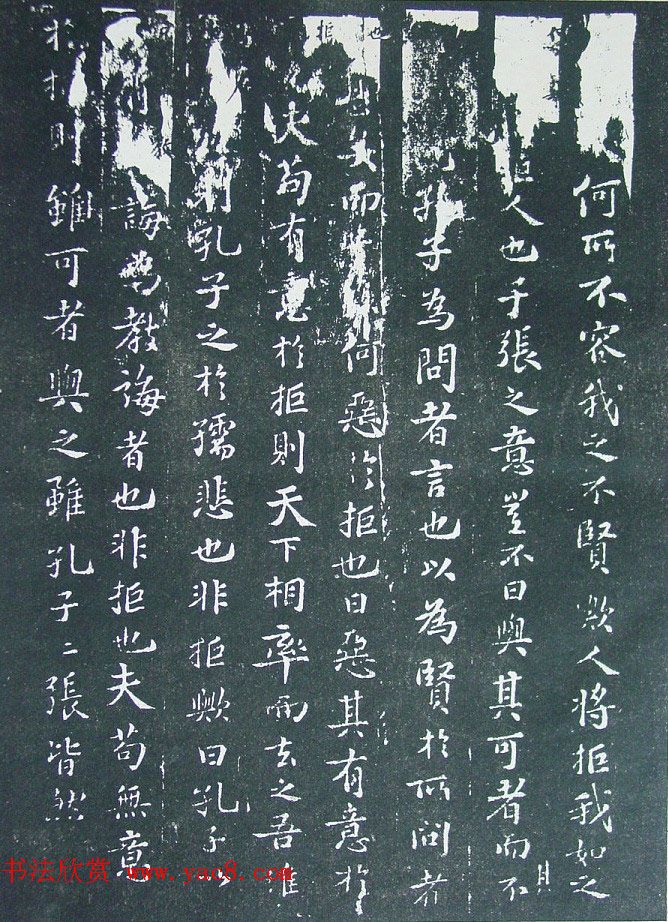 何所不容我之不賢歟人將拒我如之
人也子張之意豈不曰與其可者而不
孔子為問者言也以為賢於所問者
而 何惡於拒也曰惡其有意於
夫苟有意於拒則天下相率而去之吾
孔子之於孺悲也非拒歟曰孔子以
誨為教誨者也非拒也夫苟無意
於拒則雖可者與之雖孔子子張皆然
书法欣赏 www.yac8.com